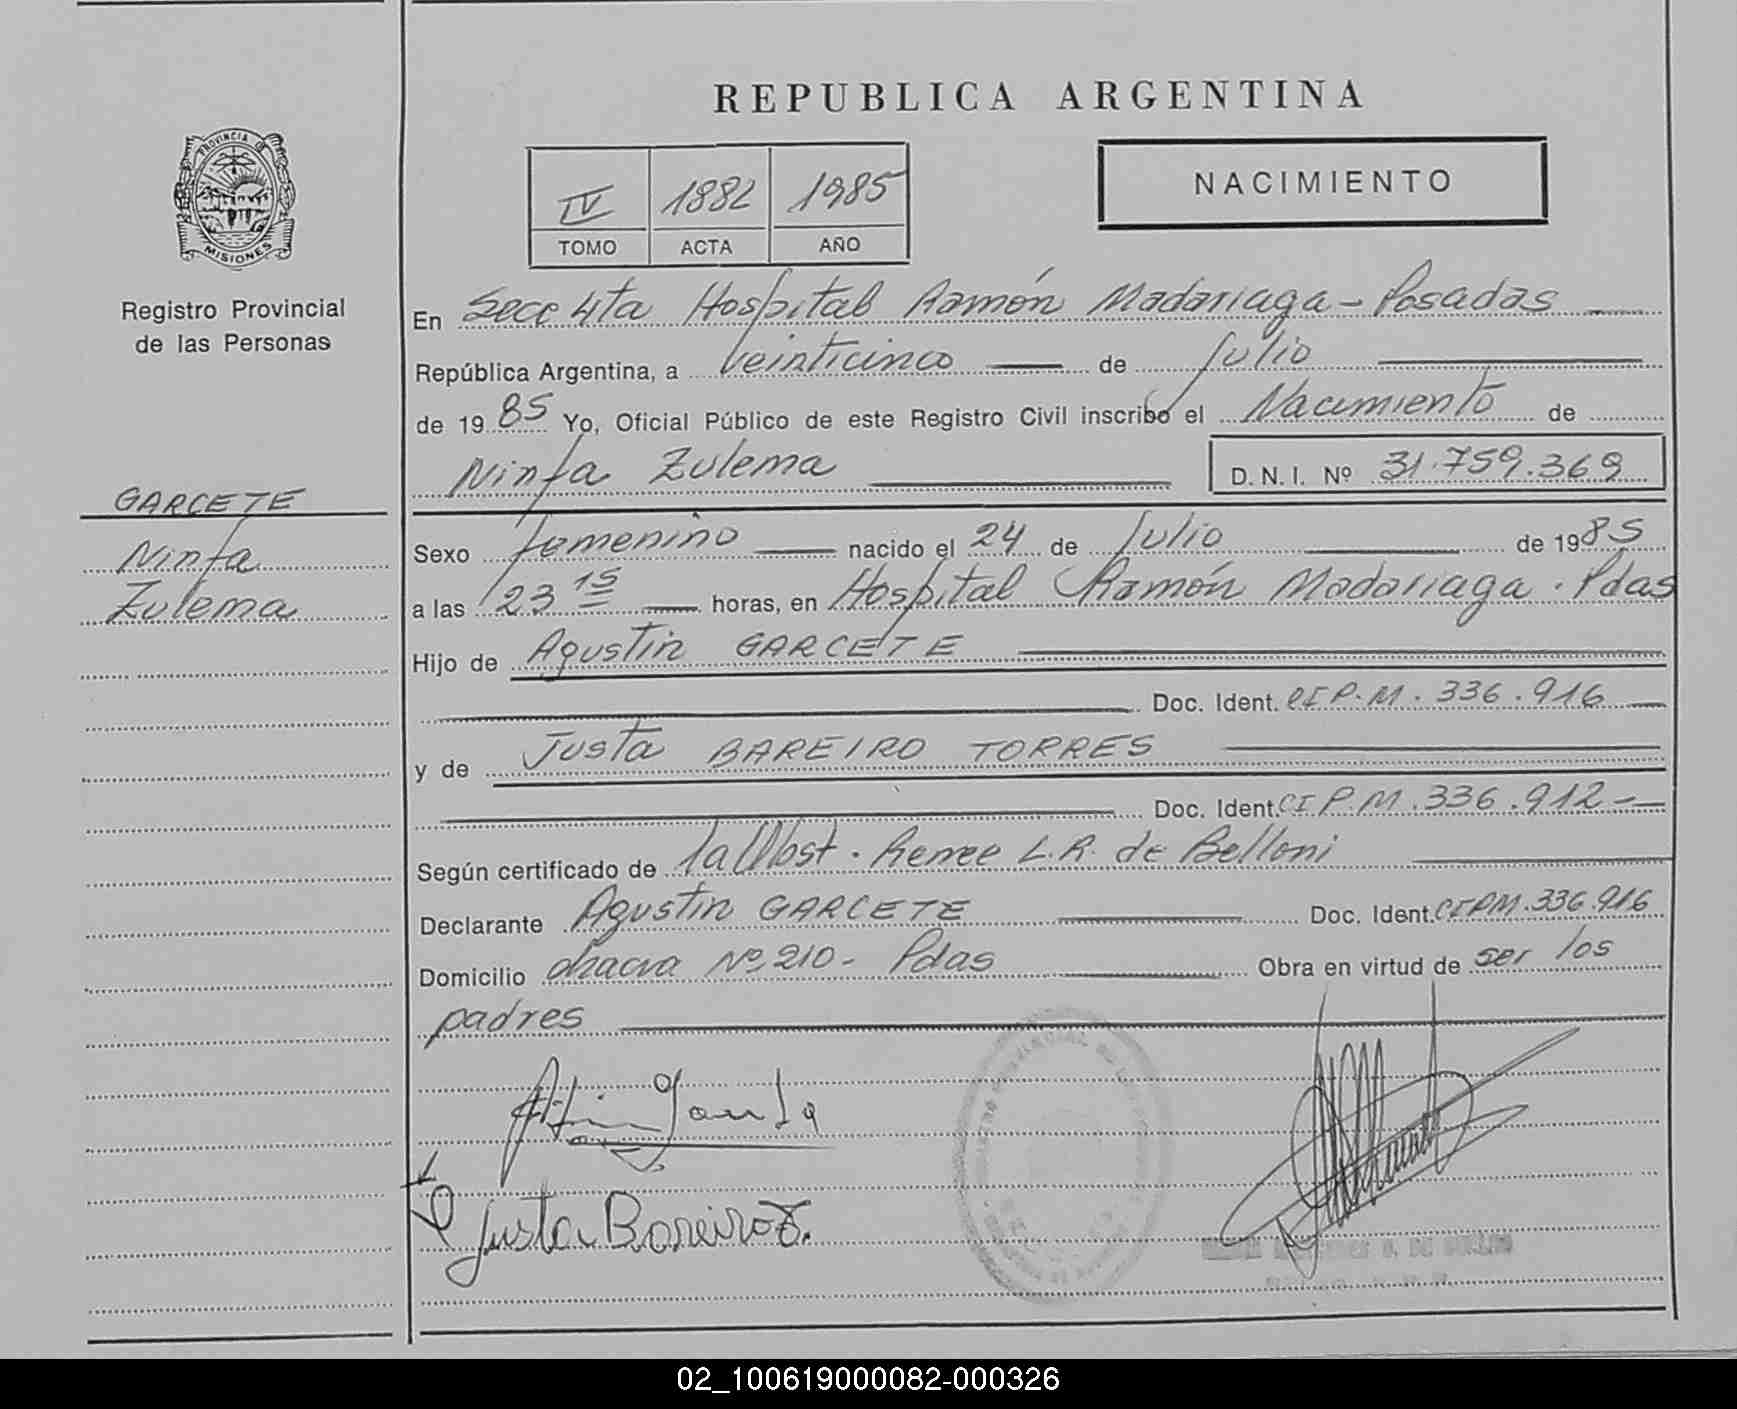 REPUBLICA ARGENTINA
PROVINCIA DE
MISIONES
Registro Provincial
de las Personas
IV 1882 1985
TOMO ACTA AÑO
NACIMIENTO
En Secc 4ta Hospital Ramón Madariaga - Posadas
República Argentina, a veinticinco de Julio
de 1985 Yo, Oficial Público de este Registro Civil inscribo el Nacimiento de
Ninfa Zulema D. N. I. Nº 31.759.369
GARCETE
Ninfa
Zulema
Sexo femenino nacido el 24 de Julio de 1985
a las 23 15 horas, en Hospital Ramón Madariaga . Pdas
Hijo de Agustin GARCETE
Doc. Ident. CI P. M. 336.916
y de Justa BAREIRO TORRES
Doc. Ident. CI P. M. 336.912
Según certificado de Renee L. R. de Belloni
Declarante Agustin GARCETE Doc. Ident. CIPM. 336.916
Domicilio chacra Nº 210 - Pdas Obra en virtud de ser los
padres
Justa Bareiro T.
02_100619000082-000326